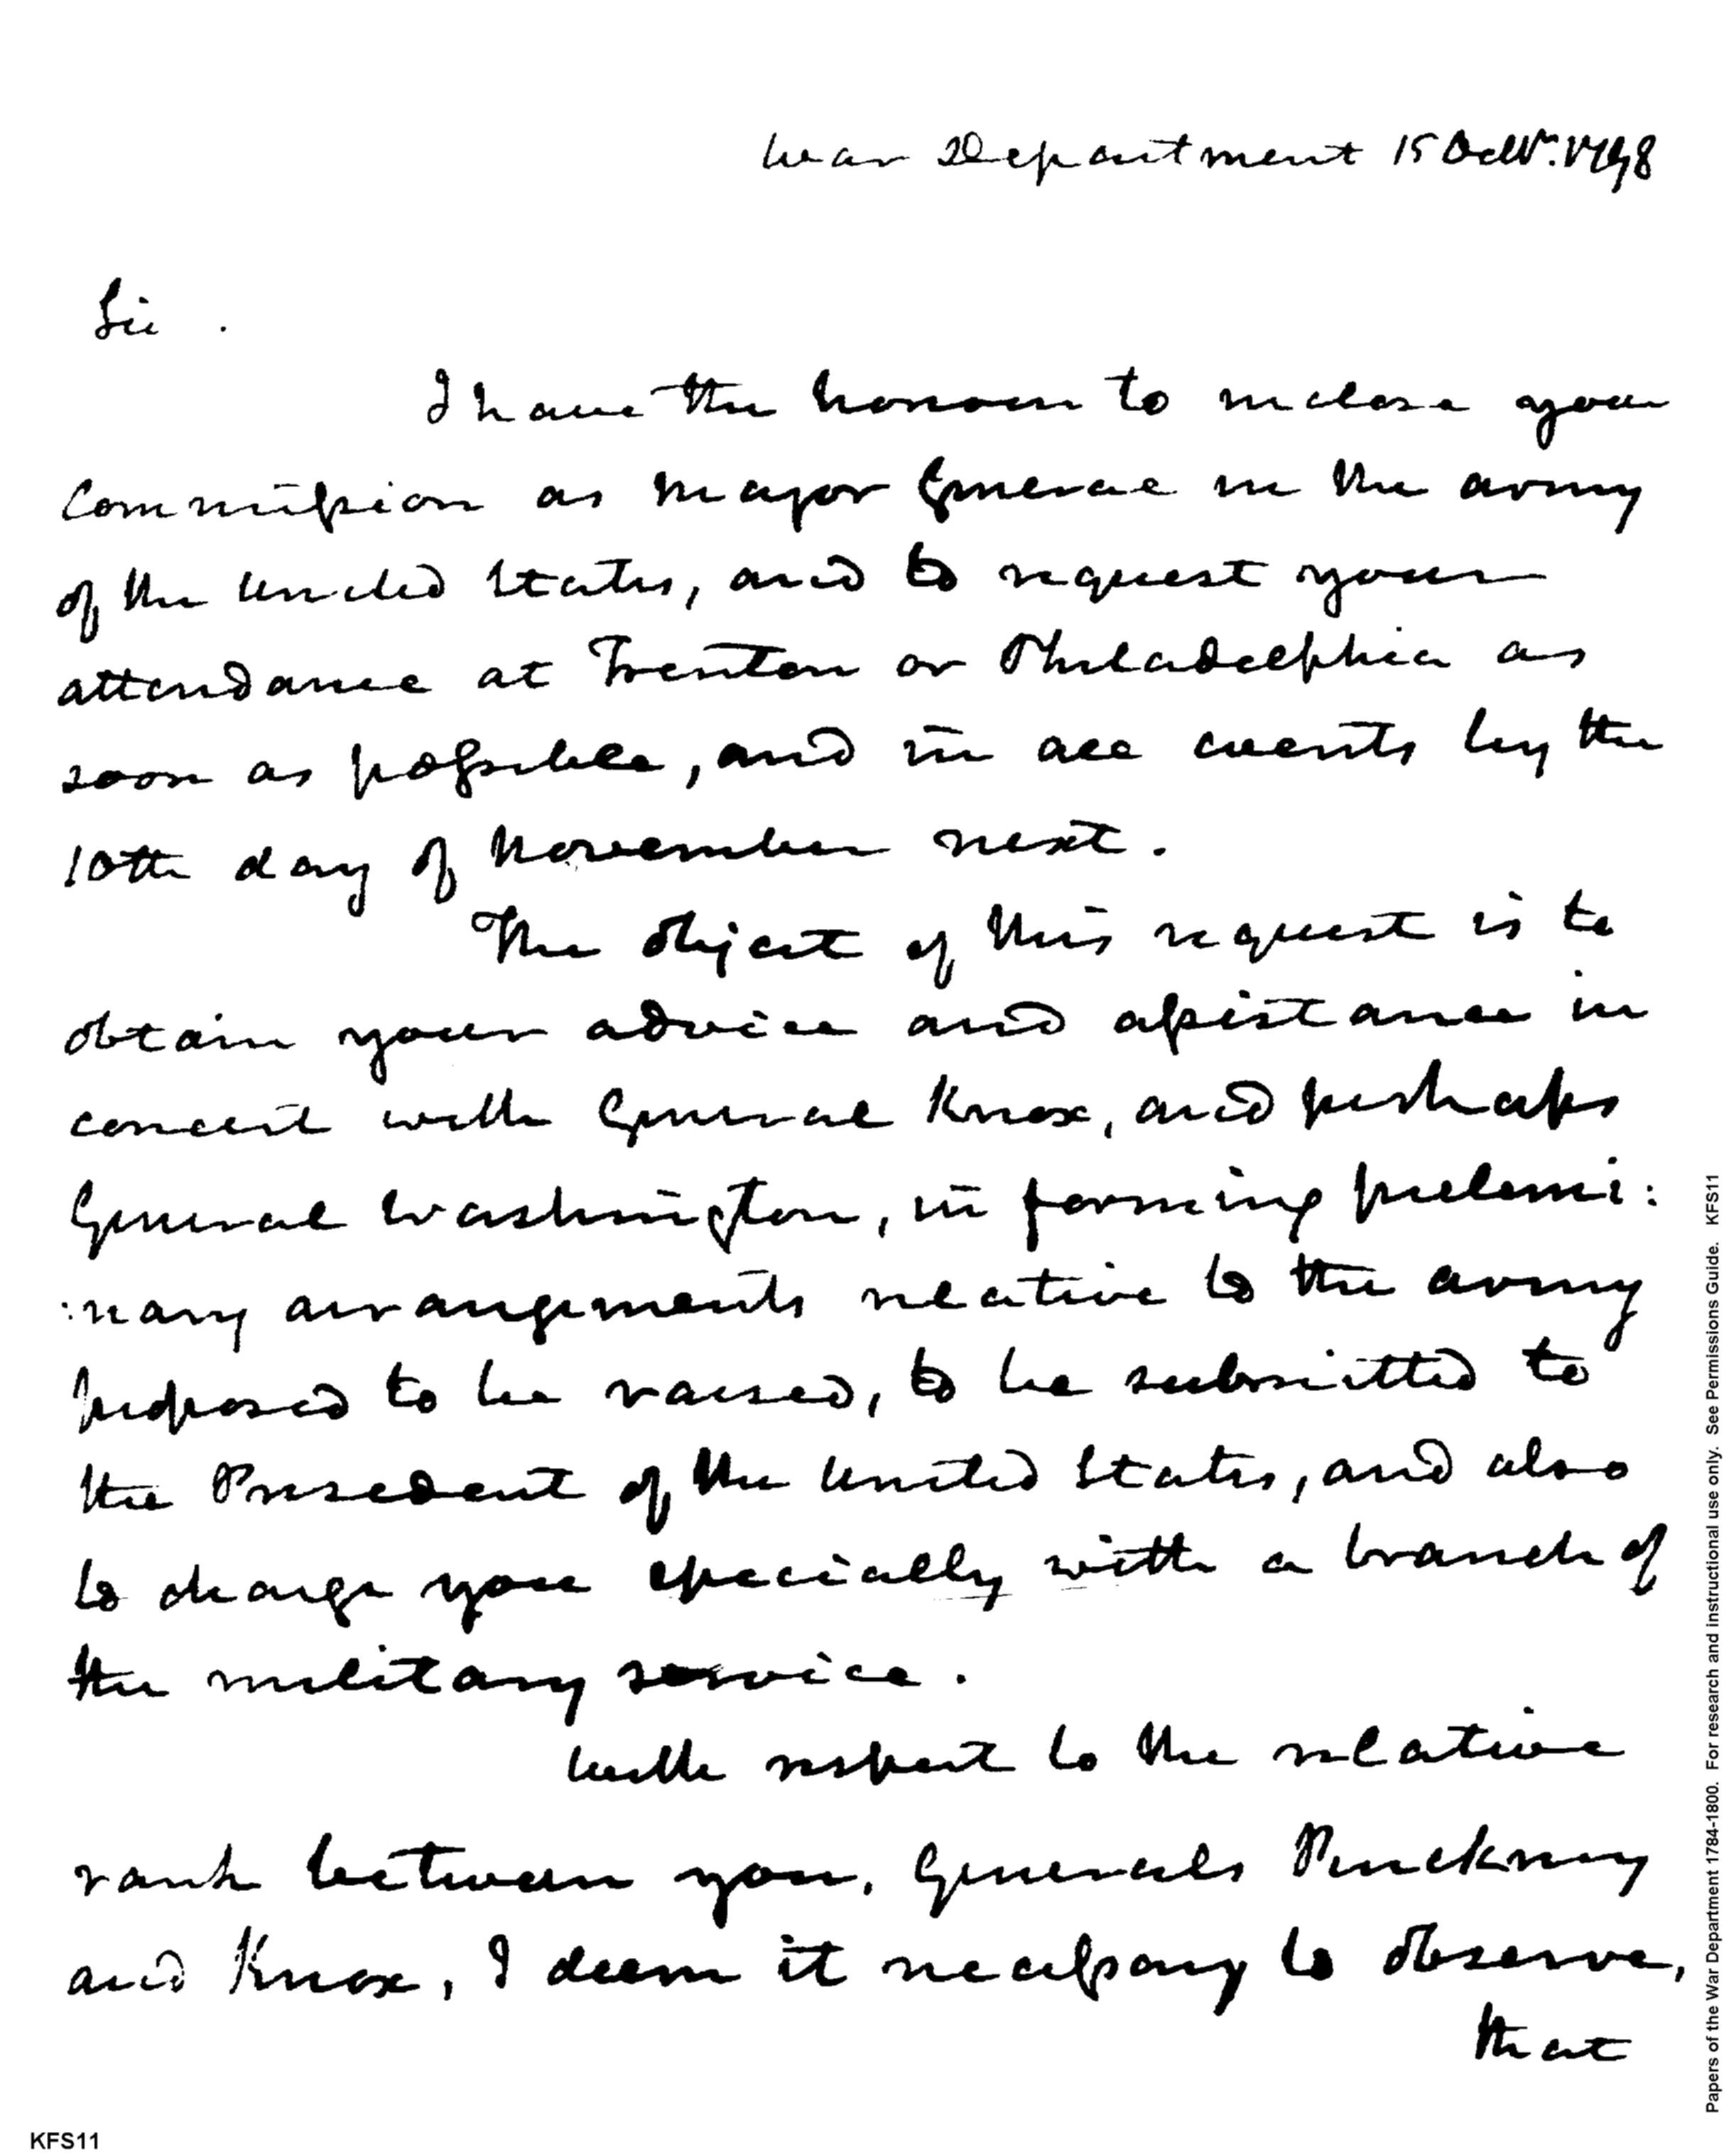 War Department 15 Octbr. 1798
Sir.
I have the honour to inclose your
Commission as Major General in the army
of the United States, and to request your
attendance at Trenton or Philadelphia as
soon as possible, and in all events by the
10th day of November next.
The object of this request is to
obtain your advice and assistance in
concert with General Knox, and perhaps
General Washington, in forming prelimi:
:nary arrangements relative to the army
proposed to be raised, to be submitted to
the President of the United States, and also
to charge you especially with a branch of
the military service.
With respect to the relative
rank between you, Generals Pinckney
and Knox, I deem it necessary to observe,
that
KFS11
Papers of the War Department 1784-1800. For research and instructional use only. See Permissions Guide. KFS11